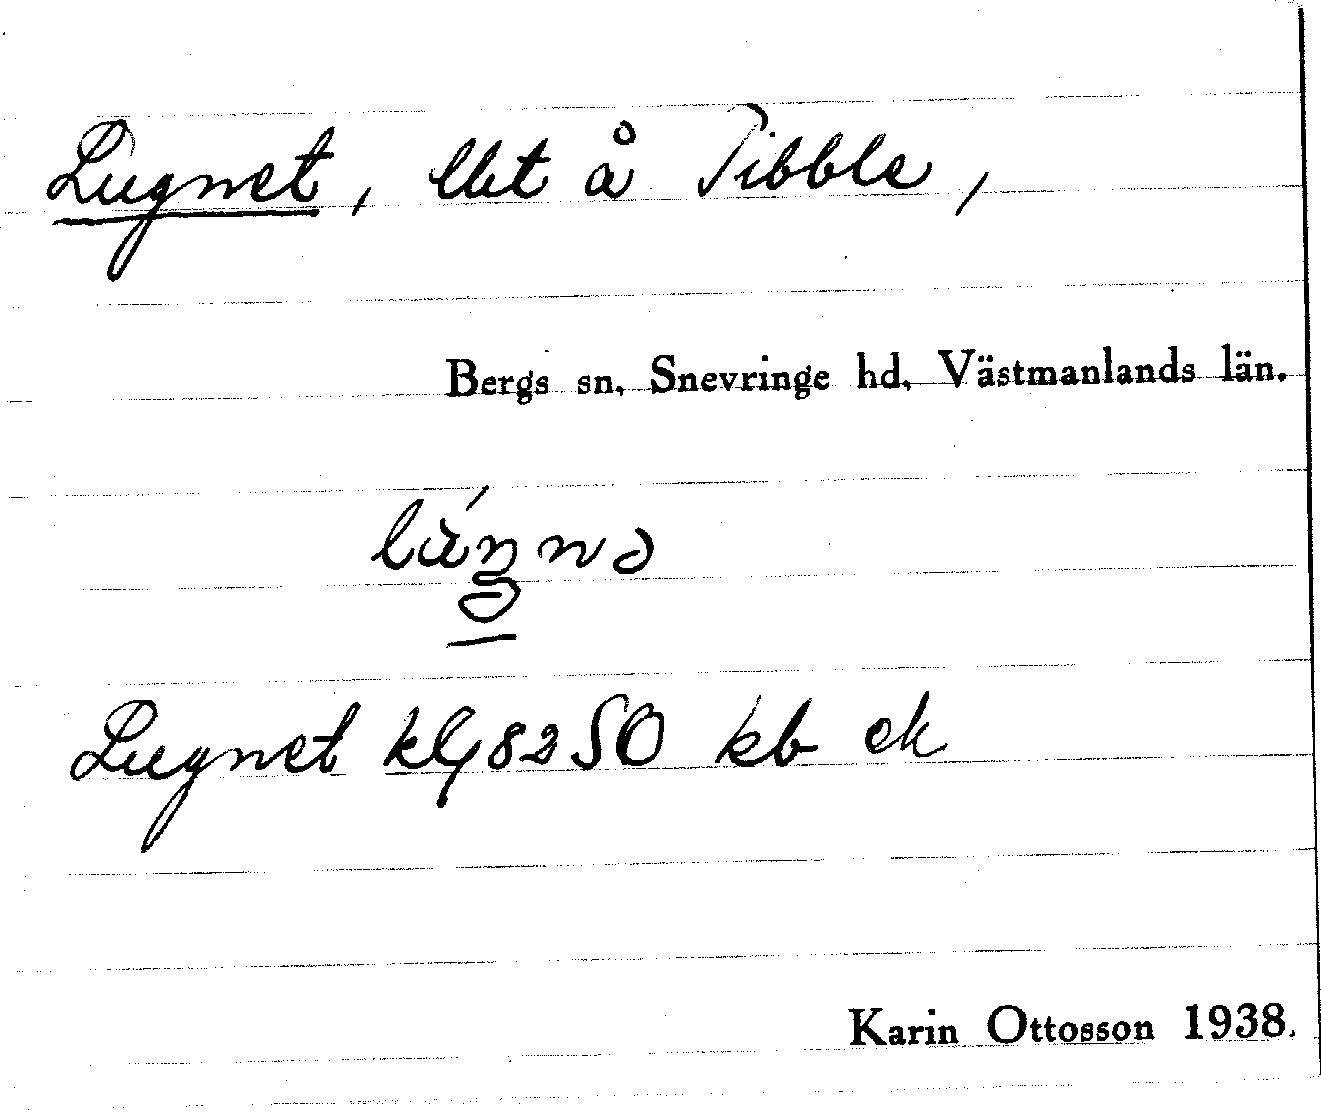 Lugnet, lht å Tibble,
Bergs sn, Snevringe hd, Västmanlands län.
Lugnet 8250 kb ek
Karin Ottosson 1938.